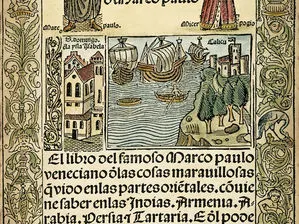 Marco paulo
Marc paulo.
Micer pogio
S. domingo.
Calicu
El libro del famoso Marco paulo
veneciano dlas cosas marauillosas
q̃ vido enlas partes oriẽtales. cõuie
ne saber enlas Indias. Armenia. A
rabia. Persia ⁊ Tartaria. E dl pode